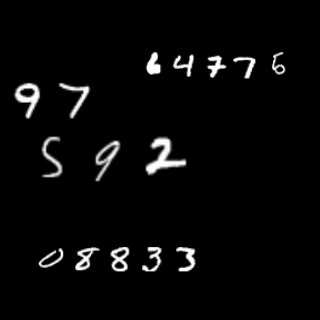 64776
97
592
08833